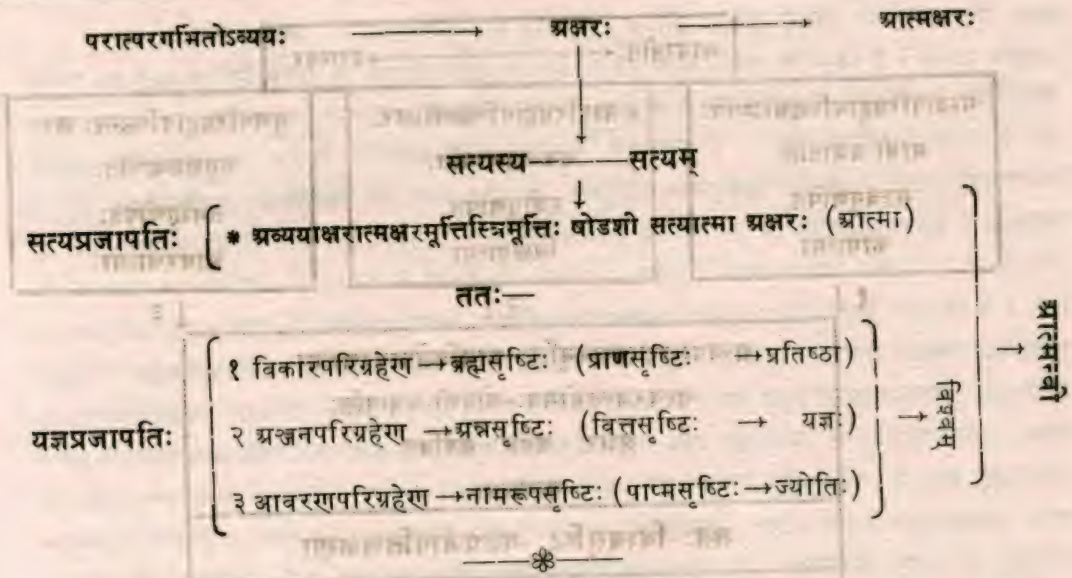 परात्परगर्भितोऽव्ययः ———→ अक्षरः ———→ आत्मक्षरः
सत्यस्य———सत्यम्
सत्यप्रजापतिः * अव्ययाक्षरात्मक्षरमूर्त्तिस्त्रिमूर्त्तिः षोडशी सत्यात्मा अक्षरः (आत्मा)
ततः—
१ विकारपरिग्रहेण→ब्रह्मसृष्टिः (प्राणसृष्टिः →प्रतिष्ठा)
यज्ञप्रजापतिः २ अञ्जनपरिग्रहेण →अन्नसृष्टिः (वित्तसृष्टिः → यज्ञः)
३ आवरणपरिग्रहेण→नामरूपसृष्टिः (पाप्मसृष्टिः→ज्योतिः)
→ विश्वम्
→ आत्मन्वी